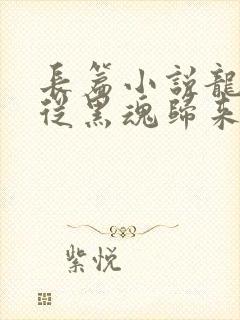 長篇小說龍
從黑魂歸來
紫悅